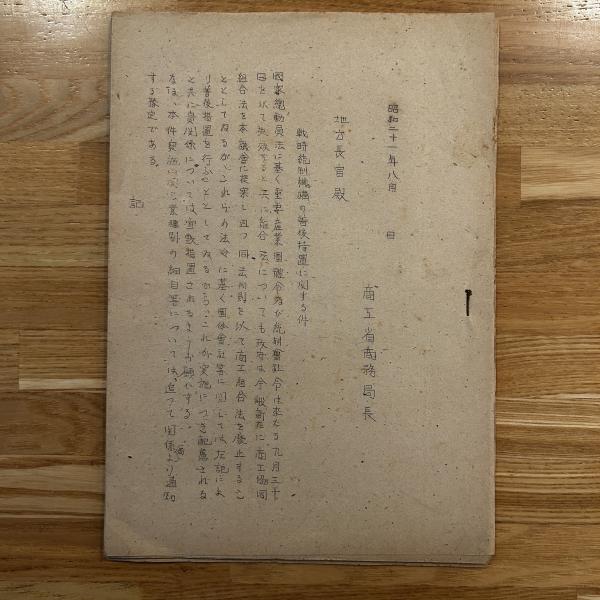 昭和二十一年八月　　日
商工省商務局長
地方長官殿
戦時統制機構の善後措置に関する件
國家總動員法に基く重要産業團體令及び統制會社令は来たる九月三十
日を以て無効となると共に組合法についても政府は今般新たに商工協同
組合法を本議會に提案し且つ同法附則を以て商工組合法を廢止するこ
ととしてゐるが、これらの法令に基く團体會社等に関しては左記によ
り善後措置を行ふこととしてゐるから、これが実施につき配慮される
と共に貴関係については宣敷措置されるよう願ひする。
なほ、本件実施に関し業種別の細目等については、追つて関係より通知
する豫定である。
記